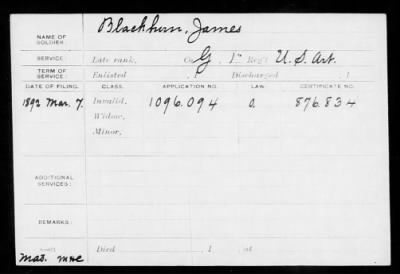 NAME OF SOLDIER: Blackburn, James
SERVICE: Late rank, Co. G, 1" Reg't U. S. Art.
TERM OF SERVICE: Enlisted , 1 Discharged , 1
DATE OF FILING. CLASS. APPLICATION NO. LAW. CERTIFICATE NO.
1892 Mar. 7. Invalid, 1096.094 O. 876.834
Widow,
Minor,
ADDITIONAL SERVICES:
REMARKS:
Died , 1 , at